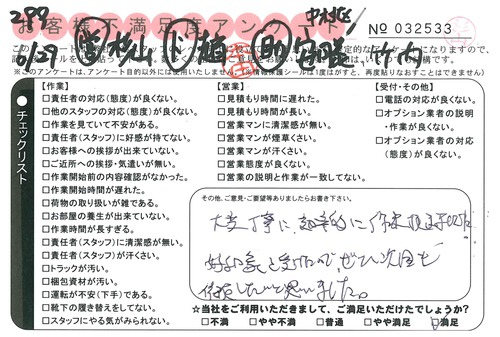 299
お客様不満足度アンケート
No 032533
6/29
このアンケートは
※このアンケートは、アンケート目的以外には使用いたしません。
チェックリスト
【作業】
□責任者の対応(態度)が良くない。
□他のスタッフの対応(態度)が良くない。
□作業を見ていて不安がある。
□責任者(スタッフ)に好感が持てない。
□お客様への挨拶が出来ていない。
□ご近所への挨拶・気遣いが無い。
□作業開始前の内容確認がなかった。
□作業開始時間が遅れた。
□荷物の取り扱いが雑である。
□お部屋の養生が出来ていない。
□作業時間が長すぎる。
□責任者(スタッフ)に清潔感が無い。
□責任者(スタッフ)が汗くさい。
□トラックが汚い。
□梱包資材が汚い。
□運転が不安(下手)である。
□靴下の履き替えをしてない。
□スタッフにやる気がみられない。
【営業】
□見積もり時間に遅れた。
□見積もり時間が長い。
□営業マンに清潔感が無い。
□営業マンが煙草くさい。
□営業マンが汗くさい。
□営業態度が良くない。
□営業の説明と作業が一致してない。
【受付・その他】
□電話の対応が良くない。
□オプション業者の説明
・作業が良くない。
□オプション業者の対応
(態度)が良くない。
その他、ご意見・ご要望等ありましたらお書き下さい。
大変丁寧に、効率的に作業
ぜひ次回も
依頼したいと思いました。
☆当社をご利用いただきまして、ご満足いただけたでしょうか?
□不満 □やや不満 □普通 □やや満足 □満足